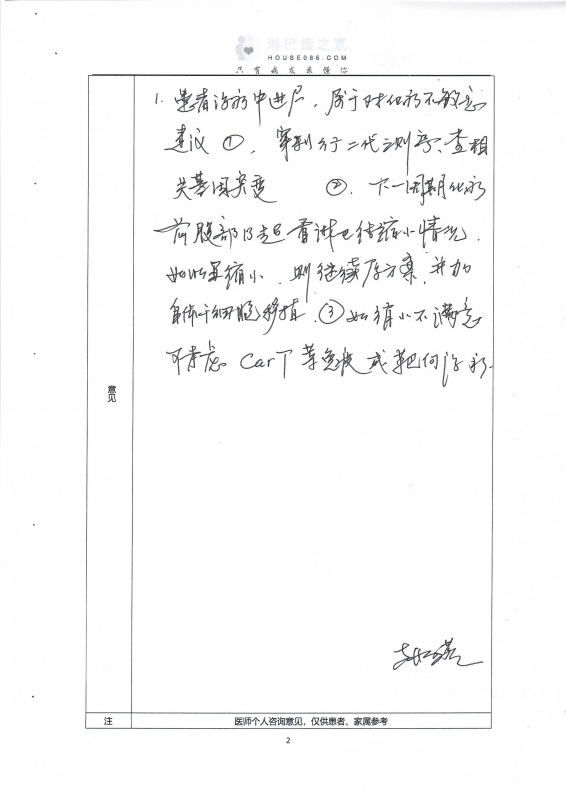 淋巴瘤之家
HOUSE086.COM
只有病友最懂你
1. 患者治疗中进展，属于对化疗不敏感
建议①、穿刺行二代测序、查相
关基因突变 ②、下一周期化疗
前腹部B超看淋巴结缩小情况，
如明显缩小，则继续原方案，并加
自体干细胞移植，③如缩小不满意
可考虑 Car T 等免疫或靶向治疗
意见
注
医师个人咨询意见，仅供患者、家属参考
2